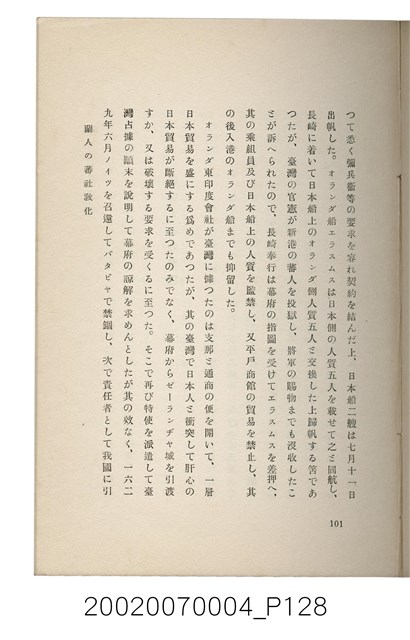 つて悉く彌兵衞等の要求を容れ契約を結んだ上、日本船二艘は七月十一日
出帆した。オランダ船エラスムスは日本側の人質五人を載せて之と囘航し、
長崎に着いて日本船上のオランダ側人質五人と交換した上歸帆する筈であ
つたが、臺灣の官憲が新港の蕃人を投獄し、將軍の賜物までも沒收したこ
とが訴へられたので、長崎奉行は幕府の指圖を受けてエラスムスを差押へ、
其の乘組員及び日本船上の人質を監禁し、又平戸商館の貿易を禁止し、其
の後入港のオランダ船までも抑留した。
オランダ東印度會社が臺灣に據つたのは支那と通商の便を開いて、一層
日本貿易を盛にする爲めであつたが、其の臺灣で日本人と衝突して肝心の
日本貿易が斷絶するに至つたのみでなく、幕府からゼーランヂヤ城を引渡
すか、又は破壞する要求を受くるに至つた。そこで再び特使を派遣して臺
灣占據の顚末を説明して幕府の諒解を求めんとしたが其の效なく、一六二
九年六月ノイツを召還してバタビヤで禁錮し、次で責任者として我國に引
蘭人の蕃社敎化
101
20020070004_P128